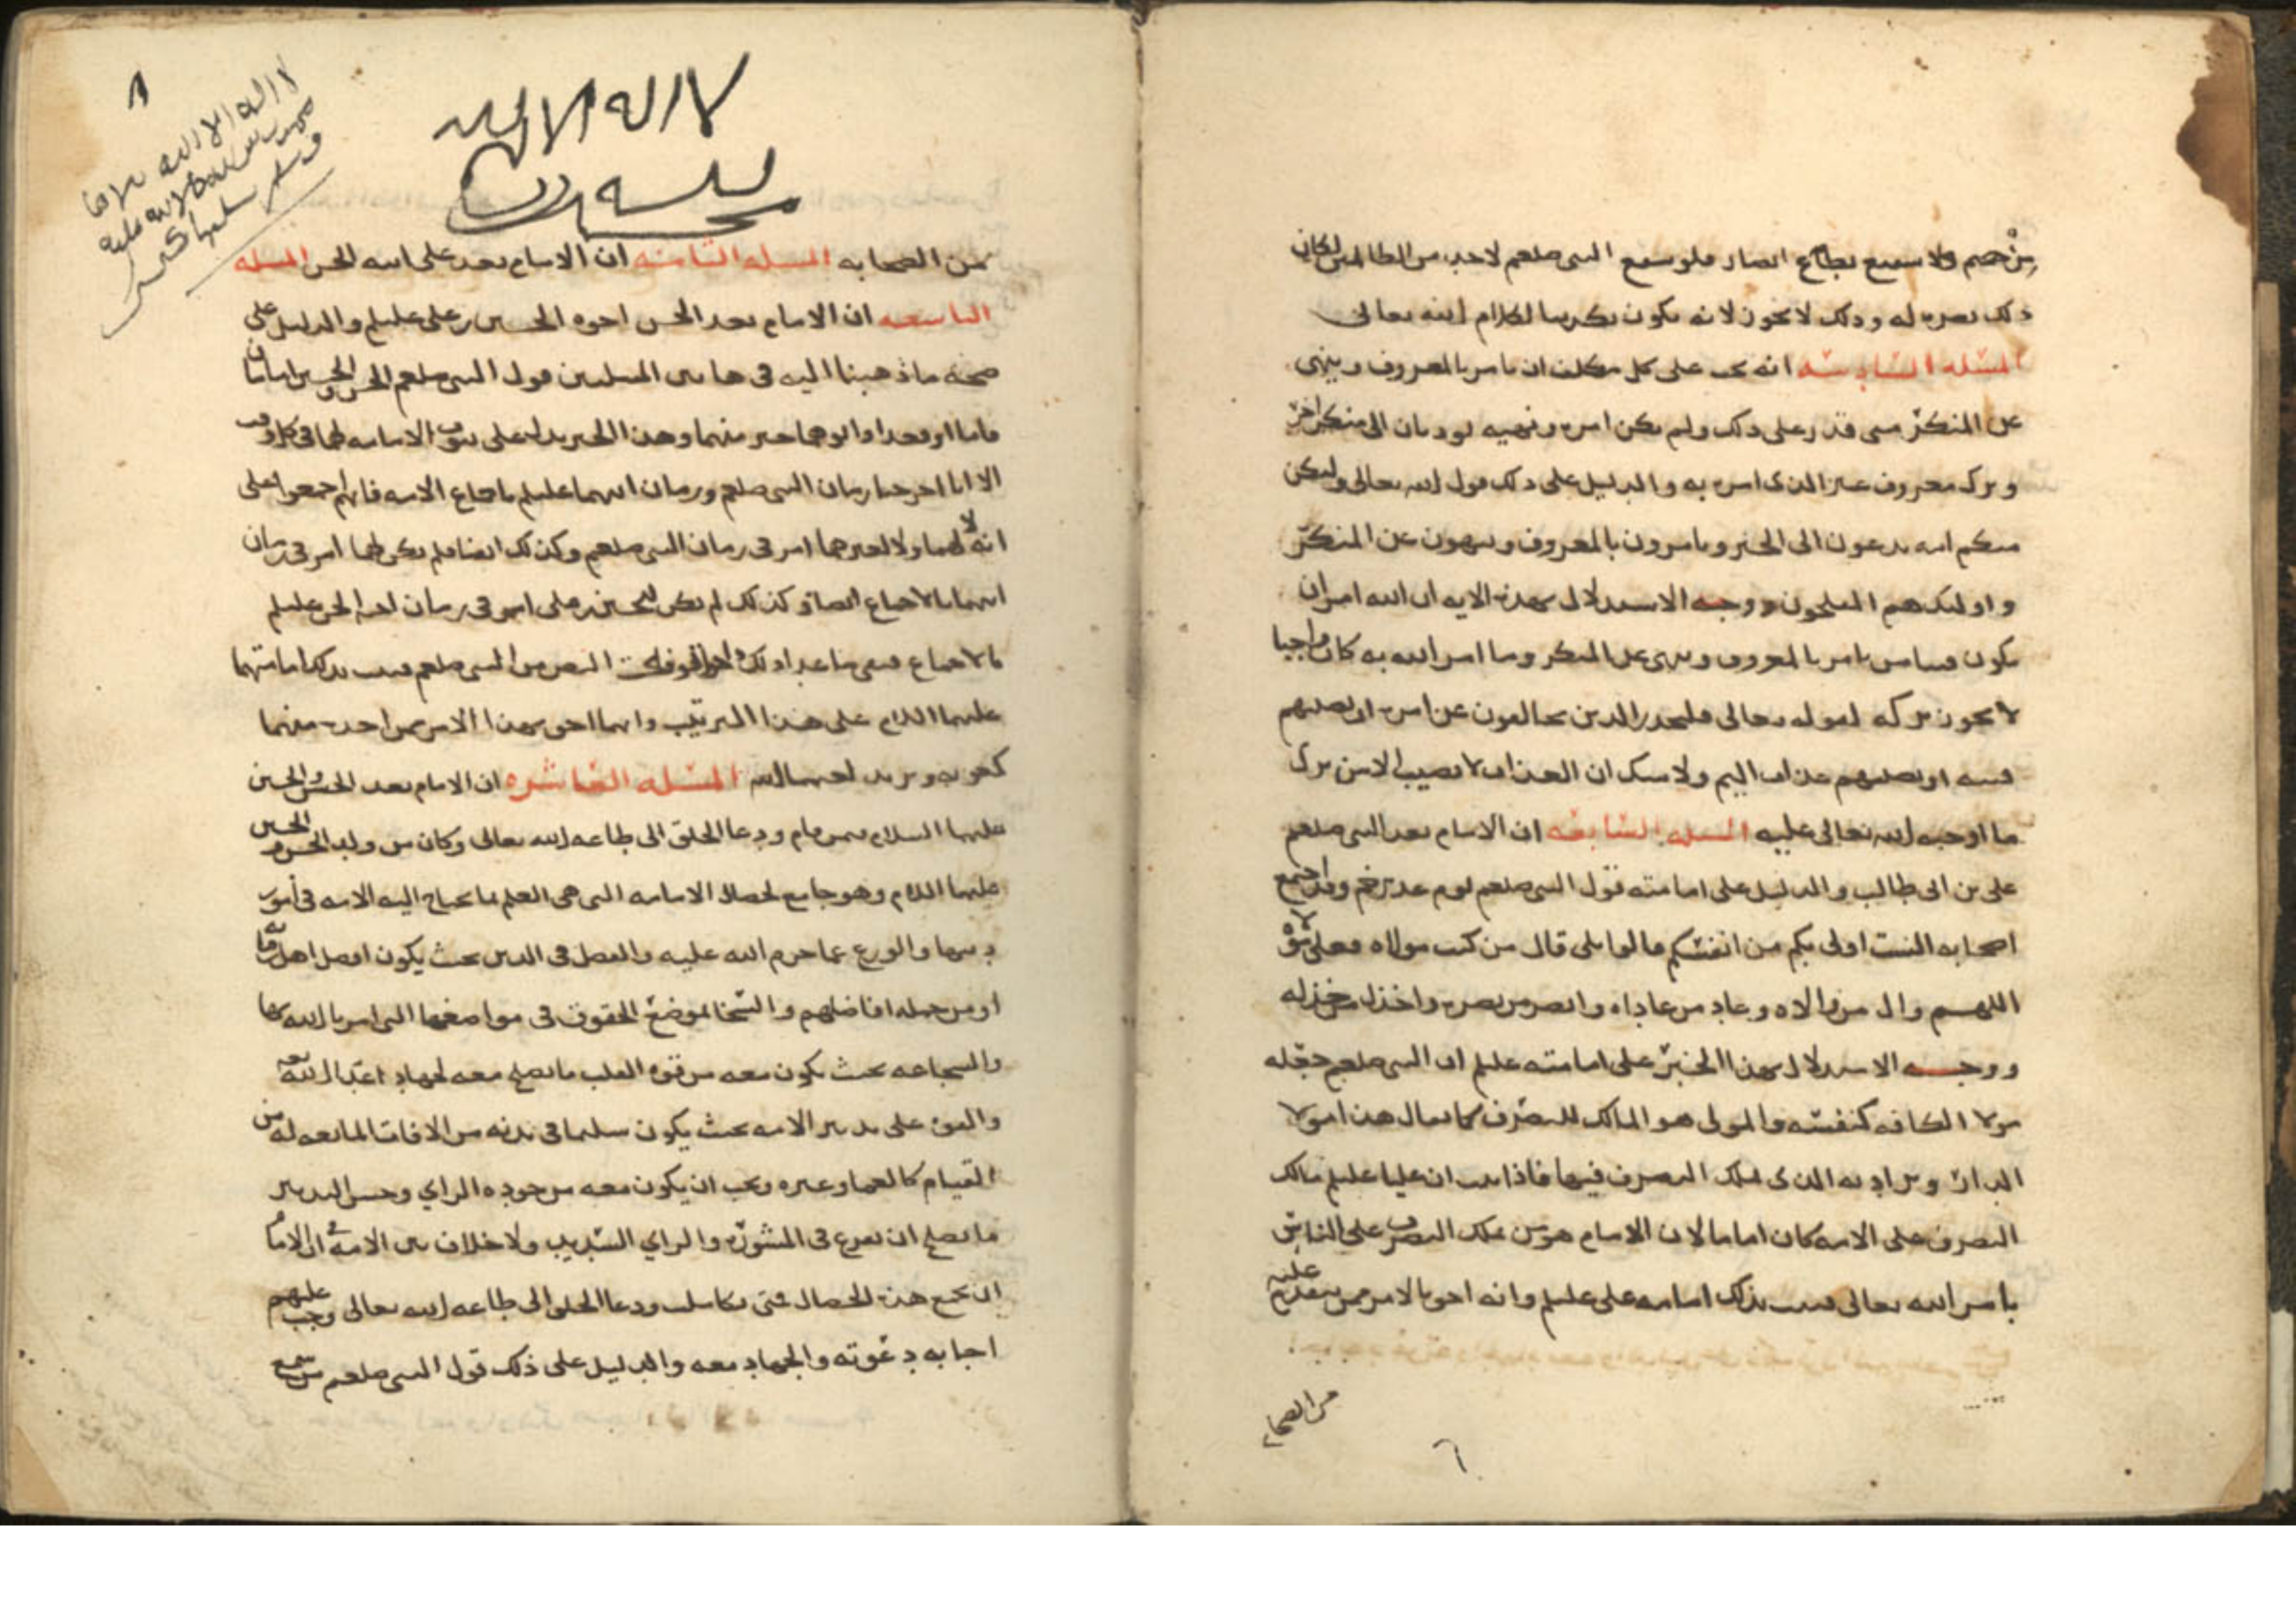 من حميم ولا شفيع يطاع انصار فلو شفع النبى صلعم لاحد من الظالمين لكان
ذلك نصره له وذلك لا يجوز لانه يكون تكذيبا لكلام الله تعالى
المسئله السادسه انه يجب على كل مكلف ان يامر بالمعروف وينهى
عن المنكر متى قدر على ذلك ولم يكن امره ونهيه يوديان الى منكر اخر
وترك معروف غير الذى امر به والدليل على ذلك قول الله تعالى ولتكن
منكم امه يدعون الى الخير ويامرون بالمعروف وينهون عن المنكر
واولئك هم المفلحون ووجه الاستدلال بهذه الايه ان الله امر ان
يكون فينا من يامر بالمعروف وينهى عن المنكر وما امر الله به كان واجبا
لا يجوز تركه لقوله تعالى فليحذر الذين يخالفون عن امره ان تصيبهم
فتنه او يصيبهم عذاب اليم ولا شك ان العذاب لا يصيب الا من ترك
ما اوجبه الله تعالى عليه المسئله السابعه ان الامام بعد النبى صلعم
على بن ابى طالب والدليل على امامته قول النبى صلعم يوم غدير خم وقد اجتمع
اصحابه الست اولى بكم من انفسكم قالوا بلى قال من كنت مولاه فعلى مولاه
اللهم وال من والاه وعاد من عاداه وانصر من نصره واخذل من خذله
ووجه الاستدلال بهذا الخبر على امامته عليلم ان النبى صلعم جعله
مولا الكافه كنفسه والمولى هو المالك للتصرف كما يقال هذا مولا
الدار ويراد به الذى يملك التصرف فيها فاذا ثبت ان عليا عليلم مالك
التصرف على الامه كان اماما لان الامام هو من يملك التصرف على الناس
بامر الله تعالى فثبت بذلك امامه على عليلم وانه احق بالامر ممن تقدم عليه
من الصحا
٦
لا اله الا الله
لا اله الا الله
من الصحابه المسئله الثامنه ان الامام بعد على ابنه الحسن المسئله
التاسعه ان الامام بعد الحسن اخوه الحسين بن على عليلم والدليل على
صحه ما ذهبنا اليه فى هاتين المسلتين قول النبى صلعم الحسن والحسين امامان
قاما او قعدا وابوهما خير منهما وهذا الخبر يدل على ثبوت الامامه لهما فى كل وقت
الا انا اخرجنا زمان النبى صلعم وزمان ابيهما عليلم باجماع الامه فانهم اجمعوا على
انه لا لهما ولا لغيرهما امر فى زمان النبى صلعم وكذلك ايضا فلم يكن لهما امر فى زمان
ابيهما بالاجماع ايضا وكذلك لم يكن للحسين بن على امر فى زمان اخيه الحسن عليلم
بالاجماع فبقى ما عدا ذلك النص من النبى صلعم فثبت بذلك امامتهما
عليهما السلام على هذا الترتيب وانهما احق بهذا الامر من احد منهما
المسئله العاشره ان الامام بعد الحسن والحسين
عليهما السلام من قام ودعا الخلق الى طاعه الله تعالى وكان من ولد الحسن والحسين
عليهما السلام وهو جامع لخصال الامامه التى هى العلم بما يحتاج اليه الامه فى امور
دينها والورع عما حرم الله عليه والفضل فى الدين بحيث يكون افضل اهل زمانه
او من جمله افاضلهم والسخا بموضع الحقوق فى مواضعها التى امر الله بها
والشجاعه بحيث يكون معه من قوه القلب ما يصلح معه لجهاد اعدا الله تعه
والقوه على تدبير الامه بحيث يكون سليما فى بدنه من الافات المانعه له من
القيام كالعما وغيره ويجب ان يكون معه من جوده الراي وحسن التدبير
ما يصلح ان يفزع فى المشوره والراي السديد ولا خلاف بين الامه ان الامام
ان جمع هذه الخصال متى تكاملت ودعا الخلق الى طاعه الله تعالى وجب عليهم
اجابه دعوته والجهاد معه والدليل على ذلك قول النبى صلعم من سمع